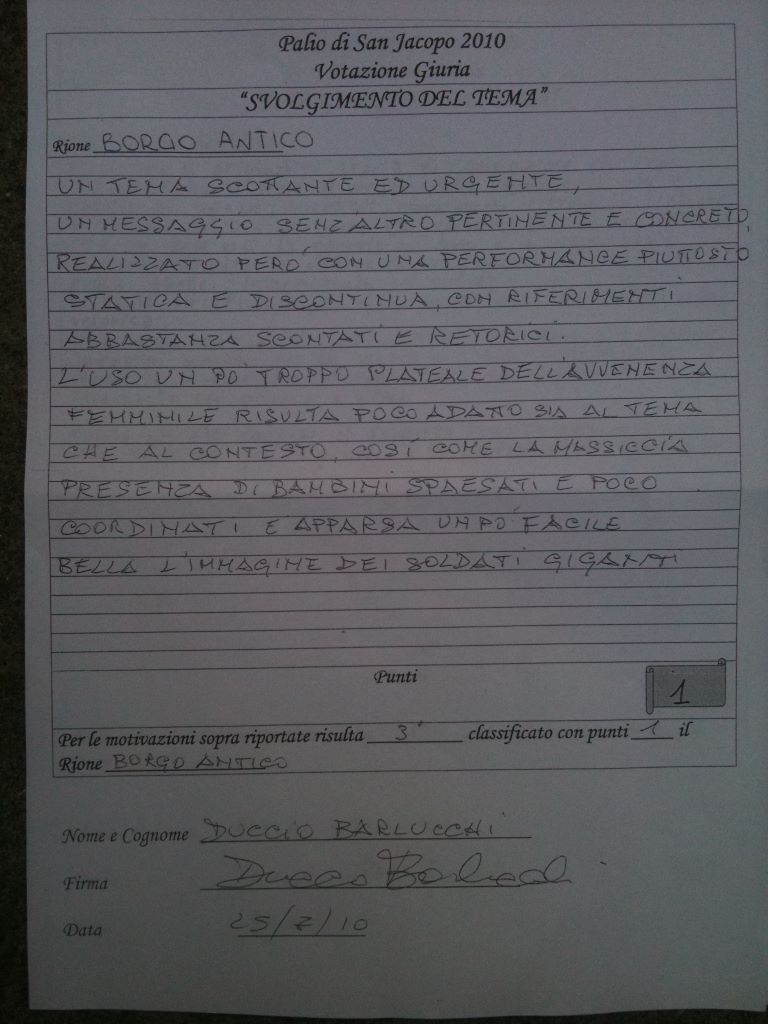 Palio di San Jacopo 2010
Votazione Giuria
"SVOLGIMENTO DEL TEMA"
Rione BORGO ANTICO
UN TEMA SCOTTANTE ED URGENTE,
UN MESSAGGIO SENZ'ALTRO PERTINENTE E CONCRETO,
REALIZZATO PERO' CON UNA PERFORMANCE PIUTTOSTO
STATICA E DISCONTINUA, CON RIFERIMENTI
ABBASTANZA SCONTATI E RETORICI.
L'USO UN PO' TROPPO PLATEALE DELL'AVVENENZA
FEMMINILE RISULTA POCO ADATTO SIA AL TEMA
CHE AL CONTESTO, COSÍ COME LA MASSICCIA
PRESENZA DI BAMBINI SPAESATI E POCO
COORDINATI È APPARSA UN PO' FACILE
BELLA L'IMMAGINE DEI SOLDATI GIGANTI
Punti
1
Per le motivazioni sopra riportate risulta 3° classificato con punti 1 il
Rione BORGO ANTICO
Nome e Cognome DUCCIO BARLUCCHI
Firma Duccio Barlucchi
Data 25/7/10